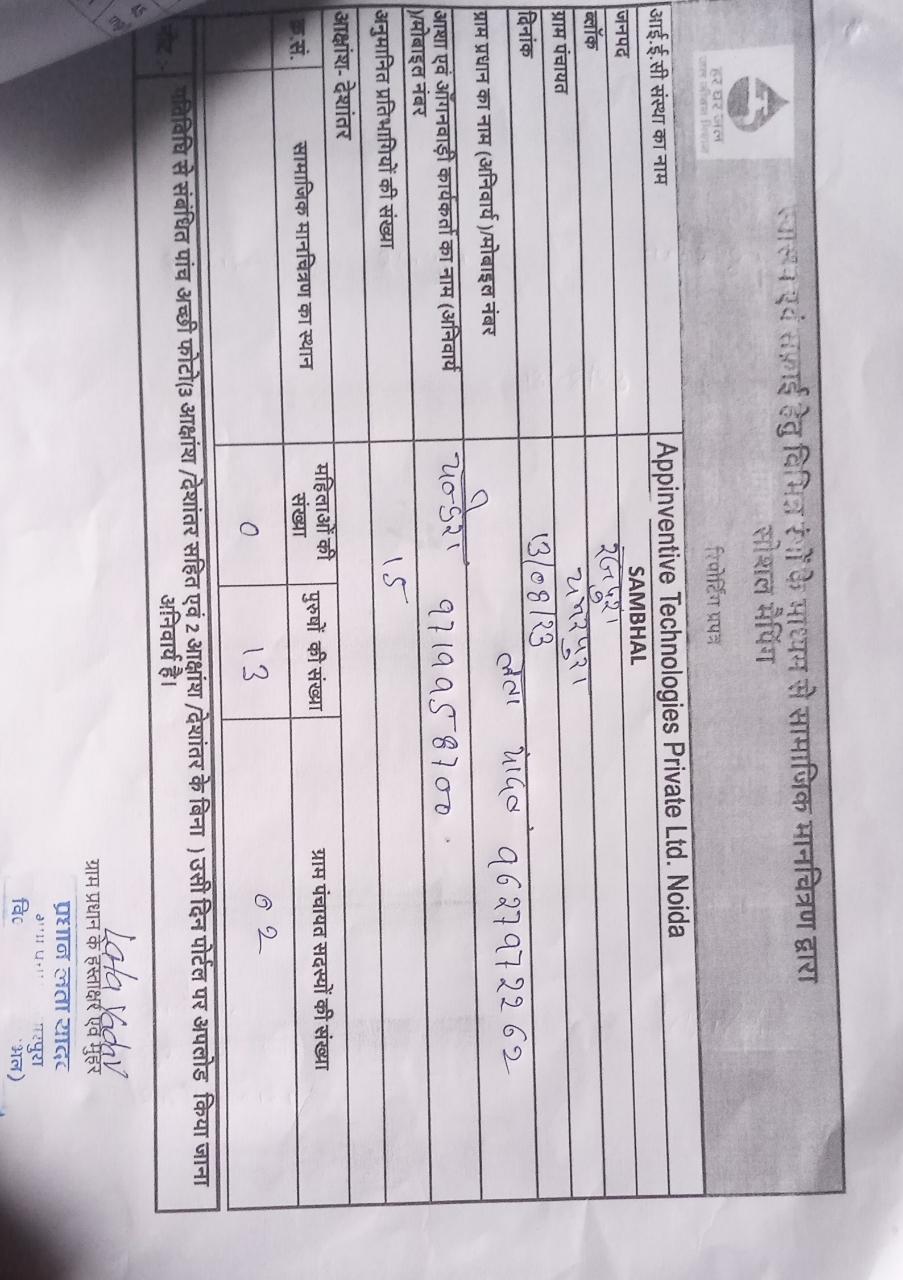 हर घर जल
जल जीवन मिशन
स्वास्थ्य एवं सफ़ाई हेतु विभिन्न रंगों के माध्यम से सामाजिक मानचित्रण द्वारा
सोशल मैपिंग
रिपोर्टिंग प्रपत्र
आई.ई.सी संस्था का नाम Appinventive Technologies Private Ltd. Noida
जनपद SAMBHAL
ब्लॉक रजपुरा
ग्राम पंचायत
दिनांक 13/08/23
ग्राम प्रधान का नाम (अनिवार्य )/मोबाइल नंबर लता यादव 9627972262
आशा एवं आँगनवाड़ी कार्यकर्ता का नाम (अनिवार्य
)/मोबाइल नंबर 9719958700
अनुमानित प्रतिभागियों की संख्या 15
आक्षांश- देशांतर
क्र.सं. सामाजिक मानचित्रण का स्थान महिलाओं की संख्या पुरुषों की संख्या ग्राम पंचायत सदस्यों की संख्या
0 13 02
नोट :- गतिविधि से संबंधित पांच अच्छी फोटो(3 आक्षांश /देशांतर सहित एवं 2 आक्षांश /देशांतर के बिना ) उसी दिन पोर्टल पर अपलोड किया जाना
अनिवार्य है।
Lata Yadav
ग्राम प्रधान के हस्ताक्षर एवं मुहर
प्रधान लता यादव